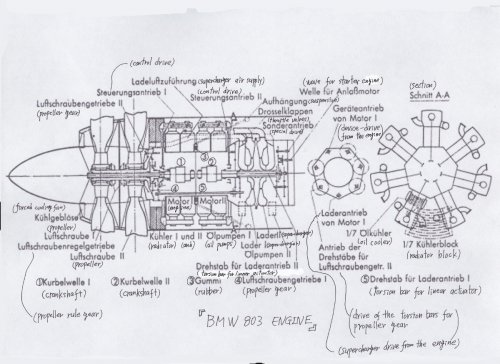 (control drive)
Ladeluftzuführung (supercharger air supply)
Steuerungsantrieb I (control drive)
Steuerungsantrieb II
Luftschraubengetriebe II
(propeller gear)
Aufhängung
(suspension)
Drosselklappen
(throttle valves)
Sonderantrieb
(special drive)
(wave for starter engine)
Welle für Anlaßmotor
Geräteantrieb
von Motor I
(device-drive)
(from the engine)
(section)
Schnitt A-A
① ②
③
④ ⑤
Motor I Motor II
(engine)
(forced cooling fan)
Kühlgebläse
(propeller)
Luftschraube I
Luftschraubenregelgetriebe
Luftschraube II
(propeller)
Kühler I und II
(radiator) (and)
Ölpumpen I
(oil pumps)
Lader I (supercharger)
Lader II (supercharger)
Ölpumpen II
Laderantrieb
von Motor I
1/7 Ölkühler
(oil cooler)
1/7 Kühlerblock
(radiator block)
Antrieb der
Drehstäbe für
Luftschraubengetr. II
Drehstab für Laderantrieb II
(torsion bar for linear actuator)
①Kurbelwelle I
(crankshaft)
②Kurbelwelle II
(crankshaft)
③Gummi
(rubber)
④Luftschraubengetriebe I
(propeller gear)
⑤Drehstab für Laderantrieb I
(torsion bar for linear actuator)
(propeller rule gear)
『BMW 803 ENGINE』
(drive of the torsion bars for
propeller gear)
(supercharger drive from the engine)